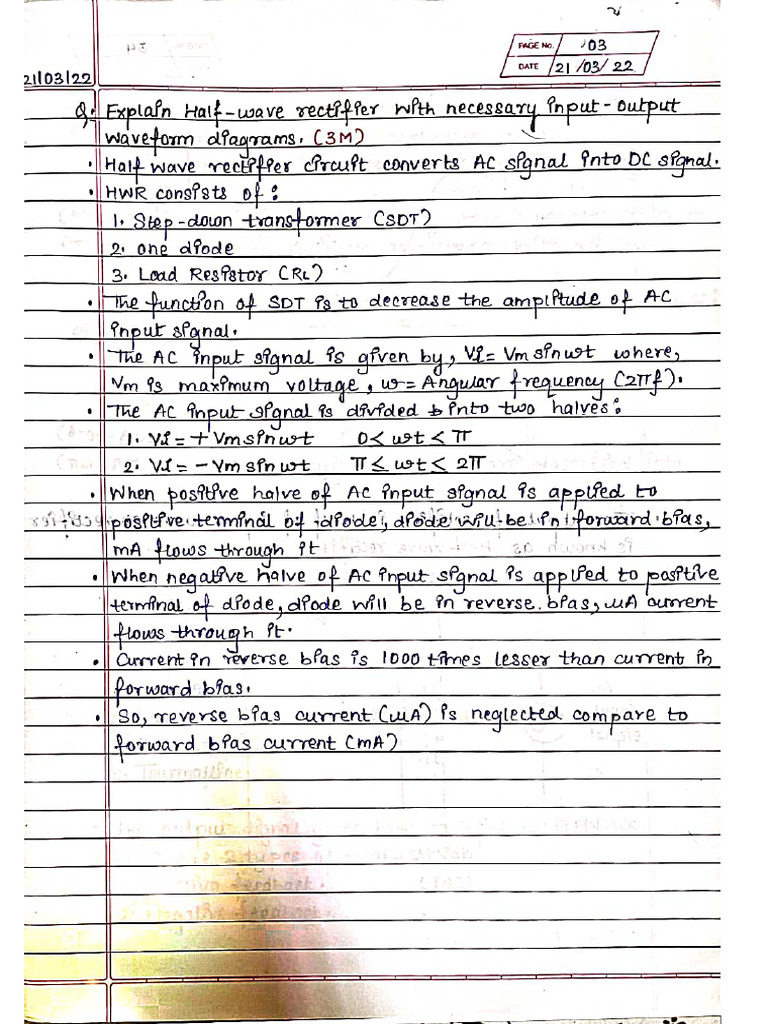 PAGE NO. 03
DATE 21/03/22
21/03/22
Q. Explain Half-wave rectifier with necessary input-output
waveform diagrams. (3M)
• Half wave rectifier circuit converts AC signal into DC signal.
• HWR consists of:
1. Step-down transformer (SDT)
2. One diode
3. Load Resistor (RL)
• The function of SDT is to decrease the amplitude of AC
input signal.
• The AC input signal is given by, Vi = Vm sinωt where,
Vm is maximum voltage, ω = Angular frequency (2πf).
• The AC input signal is divided into two halves:
1. Vi = +Vm sinωt 0 < ωt < π
2. Vi = -Vm sinωt π ≤ ωt < 2π
• When positive halve of AC input signal is applied to
positive terminal of diode, diode will be in forward bias,
mA flows through it
• When negative halve of AC input signal is applied to positive
terminal of diode, diode will be in reverse bias, uA current
flows through it.
• Current in reverse bias is 1000 times lesser than current in
forward bias.
• So, reverse bias current (uA) is neglected compare to
forward bias current (mA)